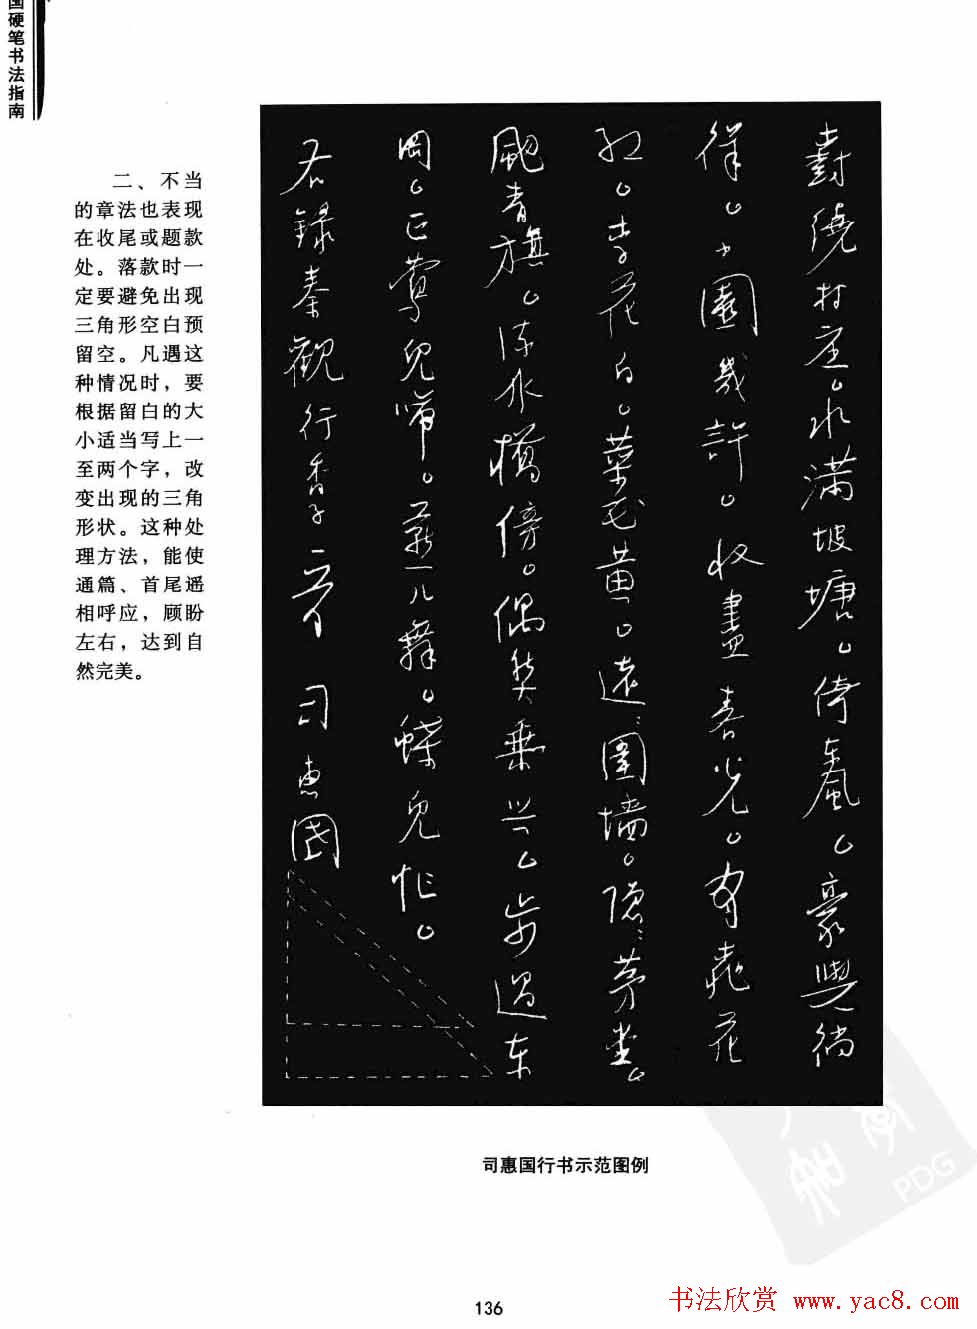 国硬笔书法指南
二、不当
的章法也表现
在收尾或题款
处。落款时一
定要避免出现
三角形空白预
留空。凡遇这
种情况时，要
根据留白的大
小适当写上一
至两个字，改
变出现的三角
形状。这种处
理方法，能使
通篇、首尾遥
相呼应，顾盼
左右，达到自
然完美。
樹繞村庄。水滿坡塘。倚東風。豪興徜
徉。小園幾許。收盡春光。有桃花
紅。李花白。菜花黄。遠:圍墙。隱:茅堂。
颺青旗。流水橋傍。偶然乘兴。步過东
岡。正鶯兒啼。燕儿舞。蝶兒忙。
右録秦觀行香子一首 司惠國
司惠国行书示范图例
PDG
136
书法欣赏 www.yac8.com